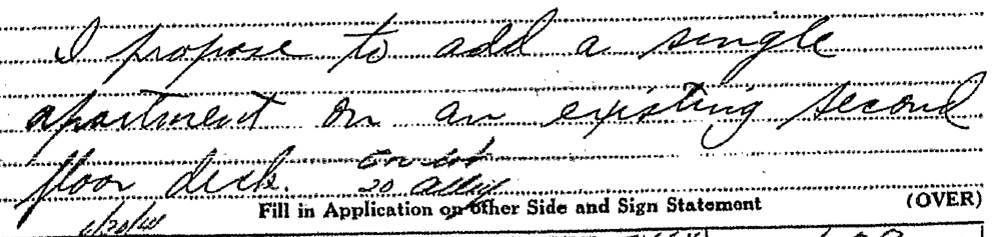 I propose to add a single
apartment on an existing second
floor deck. on lot
20
Fill in Application on other Side and Sign Statement (OVER)